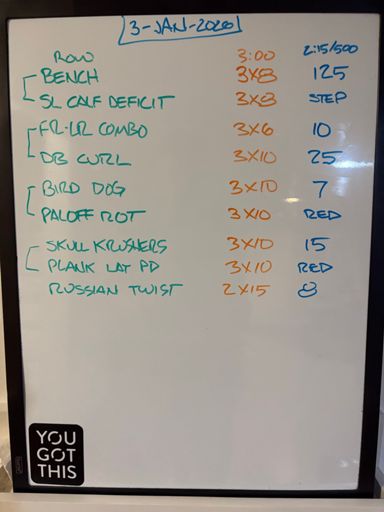 3-JAN-2020
ROW 3:00 2:15/500
BENCH 3X8 125
SL CALF DEFICIT 3X8 STEP
FR-LR COMBO 3X6 10
DB CURL 3X10 25
BIRD DOG 3X10 7
PALOFF ROT 3X10 RED
SKULL KRUSHERS 3X10 15
PLANK LAT PD 3X10 RED
RUSSIAN TWIST 2X15 8
YOU
GOT
THIS